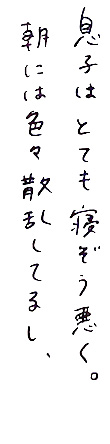 息子はとても寝ぞう悪く。
朝には色々散乱してるし、